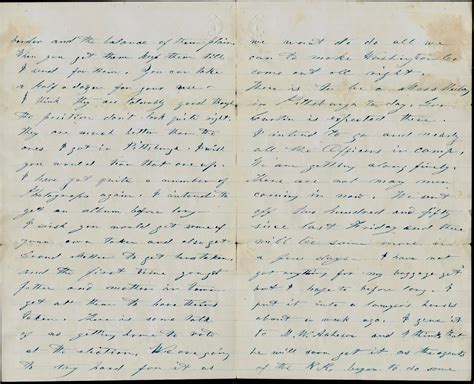 border and the balance of them plain.
When you get them keep them till
I send for them. You can take
half a dozen for your use.
I think they are tolerably good though
the position don't look quite right.
they are much better than the
ones I got in Pittsburgh. I wish
you would that are up.
I have got quite a number of
Photographs again. I intend to
get an album before long
I wish you would get some of
yours taken and also get
Grand Mother to get hers taken,
and the first time you get
father and mother in town
get at them to have theirs
taken. There is some talk
of us getting home to vote
at the election. We are going
to try hard for it as
we want to do all we
can to make Washington Co
come out all right.
There is to be a Mass Meeting
in Pittsburgh to day. Gov.
Curtin is expected there.
I intend to go and nearly
all the Officers in camp.
We are getting along finely.
There are not many men
coming in now. We sent
off five hundred and fifty
since last Friday and there
will be some more in
a few days. I have not
got anything for my baggage yet
but I hope to before long. I
put it into a lawyer's hands
about a week ago. I gave it
to M. W. and I think that
he will soon get it as the agents
of the R.R. began to do some